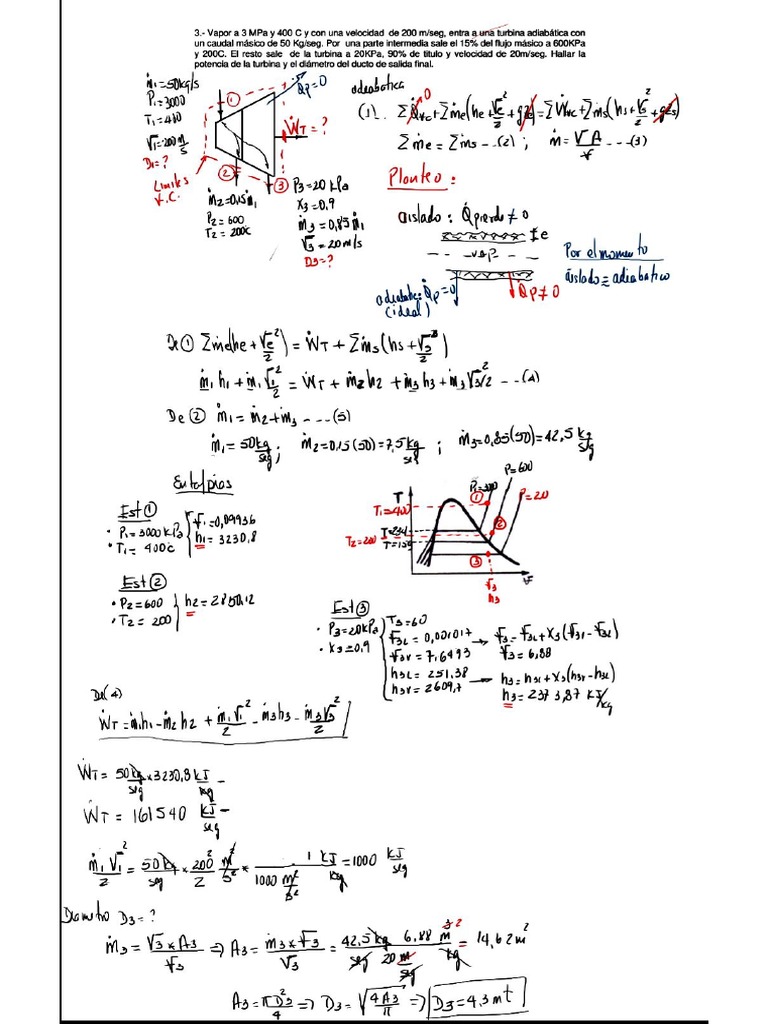 3.- Vapor a 3 MPa y 400 C y con una velocidad de 200 m/seg, entra a una turbina adiabática con
un caudal másico de 50 Kg/seg. Por una parte intermedia sale el 15% del flujo másico a 600KPa
y 200C. El resto sale de la turbina a 20KPa, 90% de titulo y velocidad de 20m/seg. Hallar la
potencia de la turbina y el diámetro del ducto de salida final.
ṁ1=50kg/s
P1=3000
T1=400
V1=200 m/s
D1=?
Limites
V.C.
①
Q̇p=0
ẆT=?
②
③
ṁ2=0,15ṁ1
P2=600
T2=200c
P3=20 kPa
X3=0,9
ṁ3=0,85ṁ1
V3=20m/s
D3=?
adeabatica
(1). ΣQ̇vc+Σṁe(he+Ve²/2+gze)=ΣẆvc+Σṁs(hs+Vs²/2+gzs)
Σṁe=Σṁs ---(2) ; ṁ=VA/v ---(3)
Planteo:
aislado: Q̇pierde≠0
vap
adeabatic: Q̇p=0
(ideal)
Q̇p≠0
Por el momento
aislado=adeabatico
De ① Σṁe(he+Ve²/2)=ẆT+Σṁs(hs+Vs²/2)
ṁ1h1+ṁ1V1²/2=ẆT+ṁ2h2+ṁ3h3+ṁ3V3²/2 ---(4)
De ② ṁ1=ṁ2+ṁ3 ----(5)
ṁ1=50kg/seg; ṁ2=0,15(50)=7,5kg/seg ; ṁ3=0,85(50)=42,5kg/sg
Entalpias
Est ①
• P1=3000kPa
• T1=400c
v1=0,09936
h1=3230,8
Est ②
• P2=600
• T2=200
h2=2850,12
T
T1=400
T=234
T2=200
T=159
P=600
P=20
①
②
③
v3
h3
v
Est ③
• P3=20kPa
• X3=0,9
T3=60
v3L=0,001017
v3v=7,6493
h3L=251,38
h3v=2609,7
v3=v3L+X3(v3v-v3L)
v3=6,88
h3=h3L+X3(h3v-h3L)
h3=2373,87 kJ/kg
De(4)
ẆT=ṁ1h1-ṁ2h2+ṁ1V1²/2-ṁ3h3-ṁ3V3²/2
ẆT=50kg/seg×3230,8kJ/kg-
ẆT=161540 kJ/seg-
ṁ1V1²/2=50kg/seg*200²/2 m²/s²*1 kJ/kg/1000 m²/s²=1000 kJ/seg
Diametro D3=?
ṁ3=V3×A3/v3⇒A3=ṁ3×v3/V3=42,5kg/seg 6,88 m³/kg/20 m/seg=14,62m²
A3=πD3²/4⇒D3=√4A3/π⇒D3=4,3mt